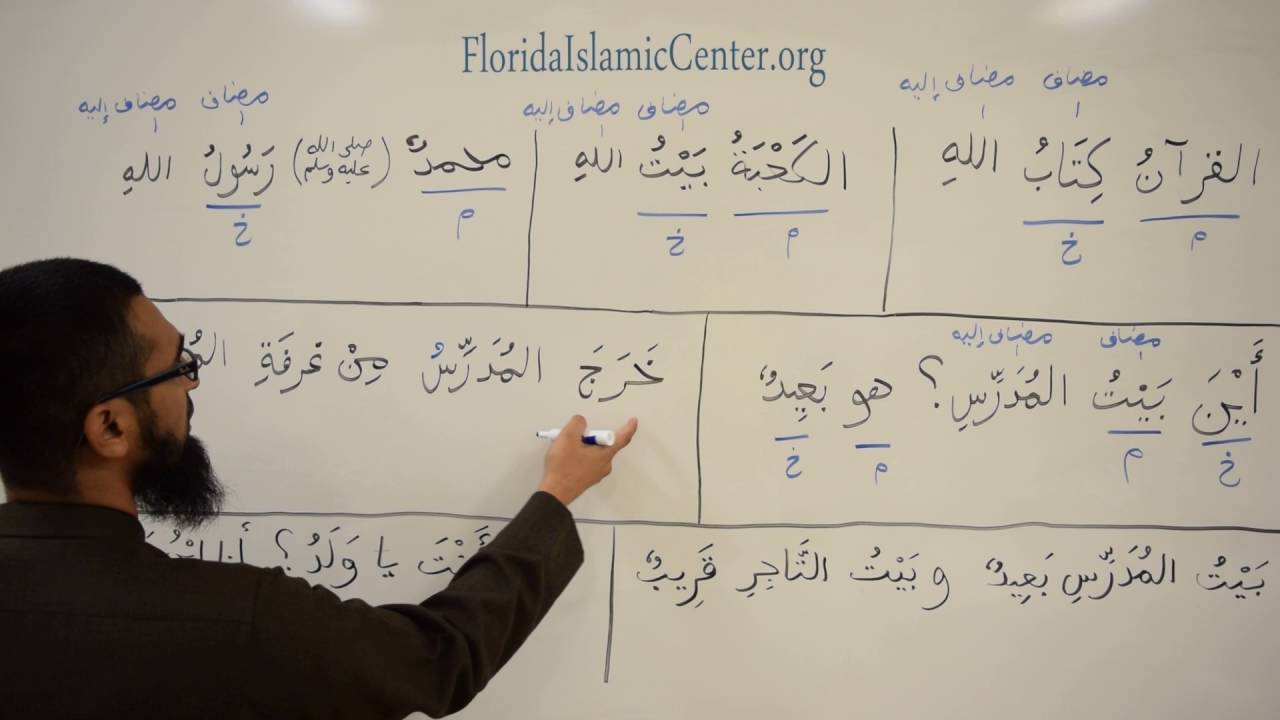 FloridaIslamicCenter.org
مضاف مضاف إليه
القرآنُ كِتَابُ اللهِ
م خ
مضاف مضاف إليه
الكَعْبَةُ بَيْتُ اللهِ
م خ
مضاف مضاف إليه
محمدٌ (صلى الله عليه وسلم) رَسُولُ اللهِ
م خ
مضاف مضاف إليه
أَيْنَ بَيْتُ المُدَرِّسِ؟ هو بَعِيدٌ
خ م م خ
خَرَجَ المُدَرِّسُ مِنْ غُرفَةِ
بَيْتُ المُدَرِّسِ بَعِيدٌ و بَيْتُ التَّاجِرِ قَرِيبٌ
أَنْتَ يا وَلَدُ؟ أنا